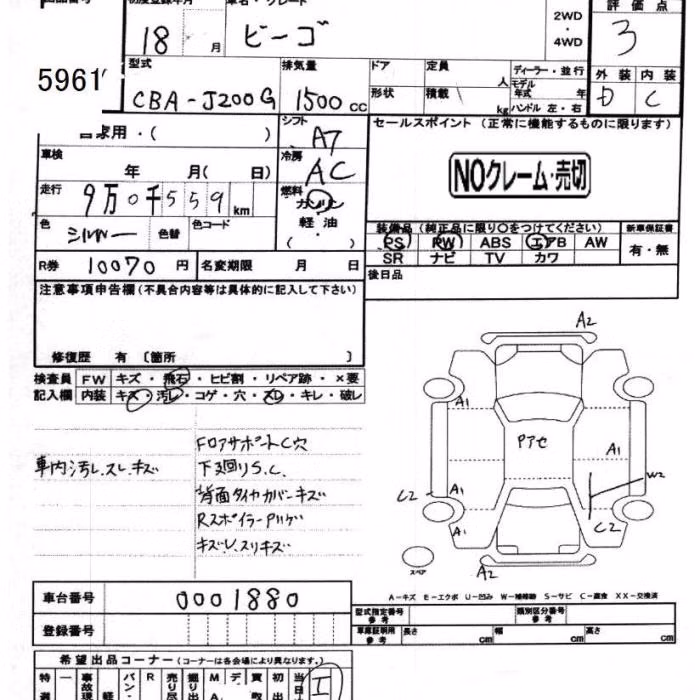 車名・グレード
18 月
ビーゴ
2WD
・
4WD
評価点
3
5961
型式
CBA-J200G
排気量
1500 CC
ドア
定員 人
ディーラー・並行
モデル年式 年
形状
積載 kg
ハンドル 左・右
外装 内装
D C
自家用・( )
シフト
A7
セールスポイント (正常に機能するものに限ります)
車検 年 月( 日)
冷房
AC
NOクレーム・売切
走行 9万0千559 km
燃料
ガソリン
軽・油
( )
色 シルバー 色替 色コード
装備品 (純正品に限り〇をつけてください)
新車保証書
PS PW ABS エアB AW
有・無
SR ナビ TV カワ
R券 10070 円 名変期限 月 日
後日品
注意事項申告欄 (不具合内容等は具体的に記入して下さい)
修復歴 有 〔箇所 〕
検査員 FW キズ・飛石・ヒビ割・リペア跡・×要
記入欄 内装 キズ・汚レ・コゲ・穴・スレ・キレ・破レ
車内汚レ.スレ.キズ
FロアサポートC穴
下回りS.C.
背面タイヤカバーキズ
Rスポイラー
キズ.スリキズ
A2
A1
A1
Pアセ
A1
W2
C2
A1
C2
A1
スペア
A2
A-キズ E-エクボ U-凹み W-補修跡 S-サビ C-腐食 XX-交換済
車台番号 0001880
登録番号
型式指定番号 参考
類別区分番号 参考
車庫証明用 参考 長さ cm 幅 cm 高さ cm
希望出品コーナー (コーナーは各会場により異なります。)